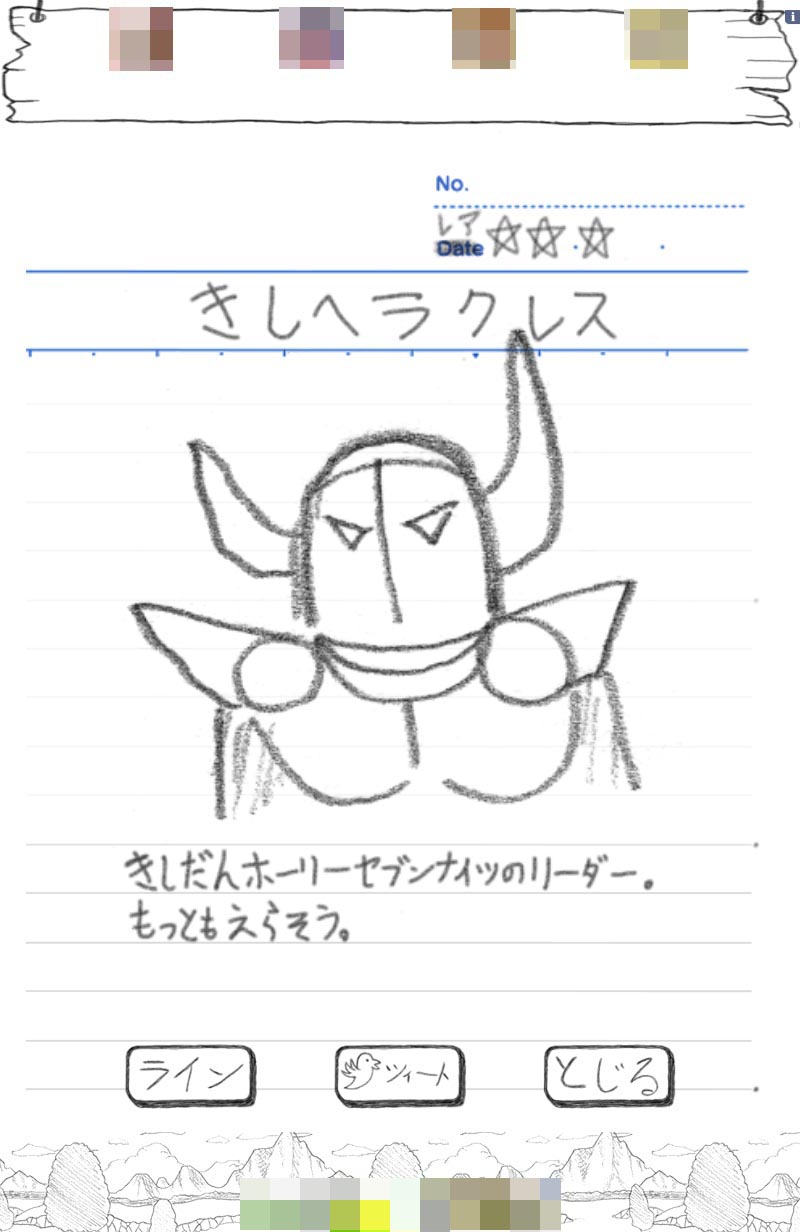 No.
レア ☆☆☆
Date
きしヘラクレス
きしだんホーリーセブンナイツのリーダー。
もっともえらそう。
ライン
ツイート
とじる